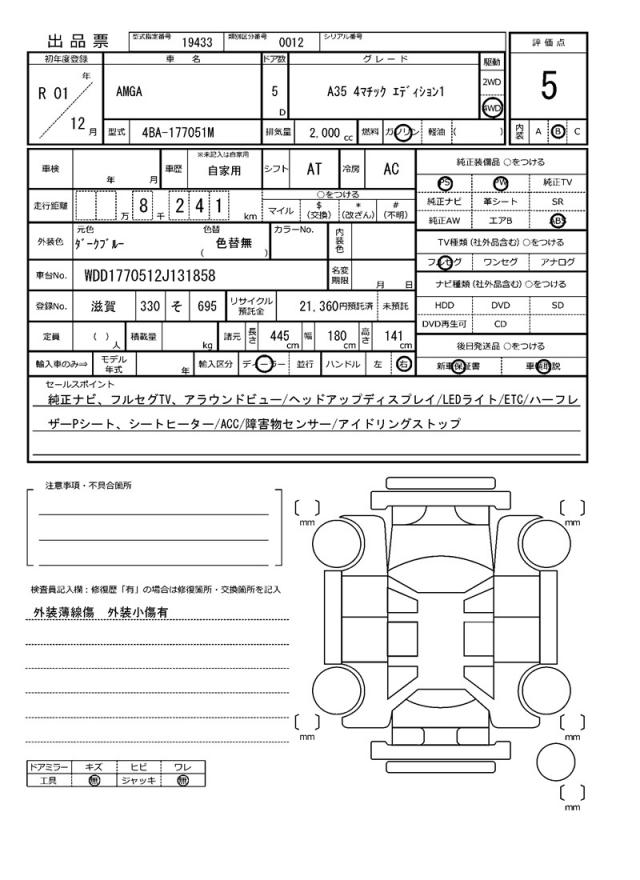 出品票
型式指定番号 19433 類別区分番号 0012 シリアル番号
評価点
5
初年度登録 車名 ドア数 グレード 駆動
R 01 年 12 月
AMGA
5 D
A35 4マチック エディション1
2WD
4WD
型式 4BA-177051M 排気量 2,000 cc 燃料 ガソリン 軽油 ( )
内装 A B C
車検 年 月 車歴 ※未記入は自家用 自家用 シフト AT 冷房 AC
走行距離 万 8 千 2 4 1 km
○をつける
マイル $ (交換) * (改ざん) # (不明)
外装色 元色 ダークブルー 色替 ( 色替無 ) カラーNo. 内装色
車台No. WDD1770512J131858 名変期限 月 日
登録No. 滋賀 330 そ 695 リサイクル預託金 21,360円預託済 未預託
定員 ( ) 人 積載量 kg 諸元 長さ 445 cm 幅 180 cm 高さ 141 cm
輸入車のみ⇒ モデル年式 年 輸入区分 ディーラー 並行 ハンドル 左 右
純正装備品 ○をつける
PS PW 純正TV
純正ナビ 革シート SR
純正AW エアB ABS
TV種類 (社外品含む) ○をつける
フルセグ ワンセグ アナログ
ナビ種類 (社外品含む) ○をつける
HDD DVD SD
DVD再生可 CD
後日発送品 ○をつける
新車保証書 車輌取説
セールスポイント
純正ナビ、フルセグTV、アラウンドビュー/ヘッドアップディスプレイ/LEDライト/ETC/ハーフレ
ザーPシート、シートヒーター/ACC/障害物センサー/アイドリングストップ
注意事項・不具合箇所
検査員記入欄：修復歴「有」の場合は修復箇所・交換箇所を記入
外装薄線傷 外装小傷有
ドアミラー キズ ヒビ ワレ
工具 無 ジャッキ 無
mm
mm
mm
mm
mm